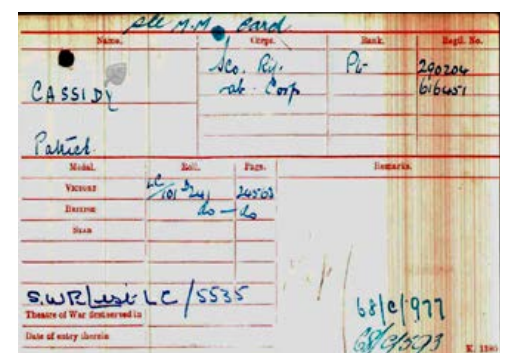 see M.M. Card
Name. Corps. Rank. Regtl. No.
Sco. Rif. Pte 290204
CASSIDY Lab. Corp 616451
Patrick
Medal. Roll. Page. Remarks.
VICTORY LC/101 24563
BRITISH do — do
STAR
LC/5535
Theatre of War first served in 68/C/977
Date of entry therein 68/C/573
K. 1380